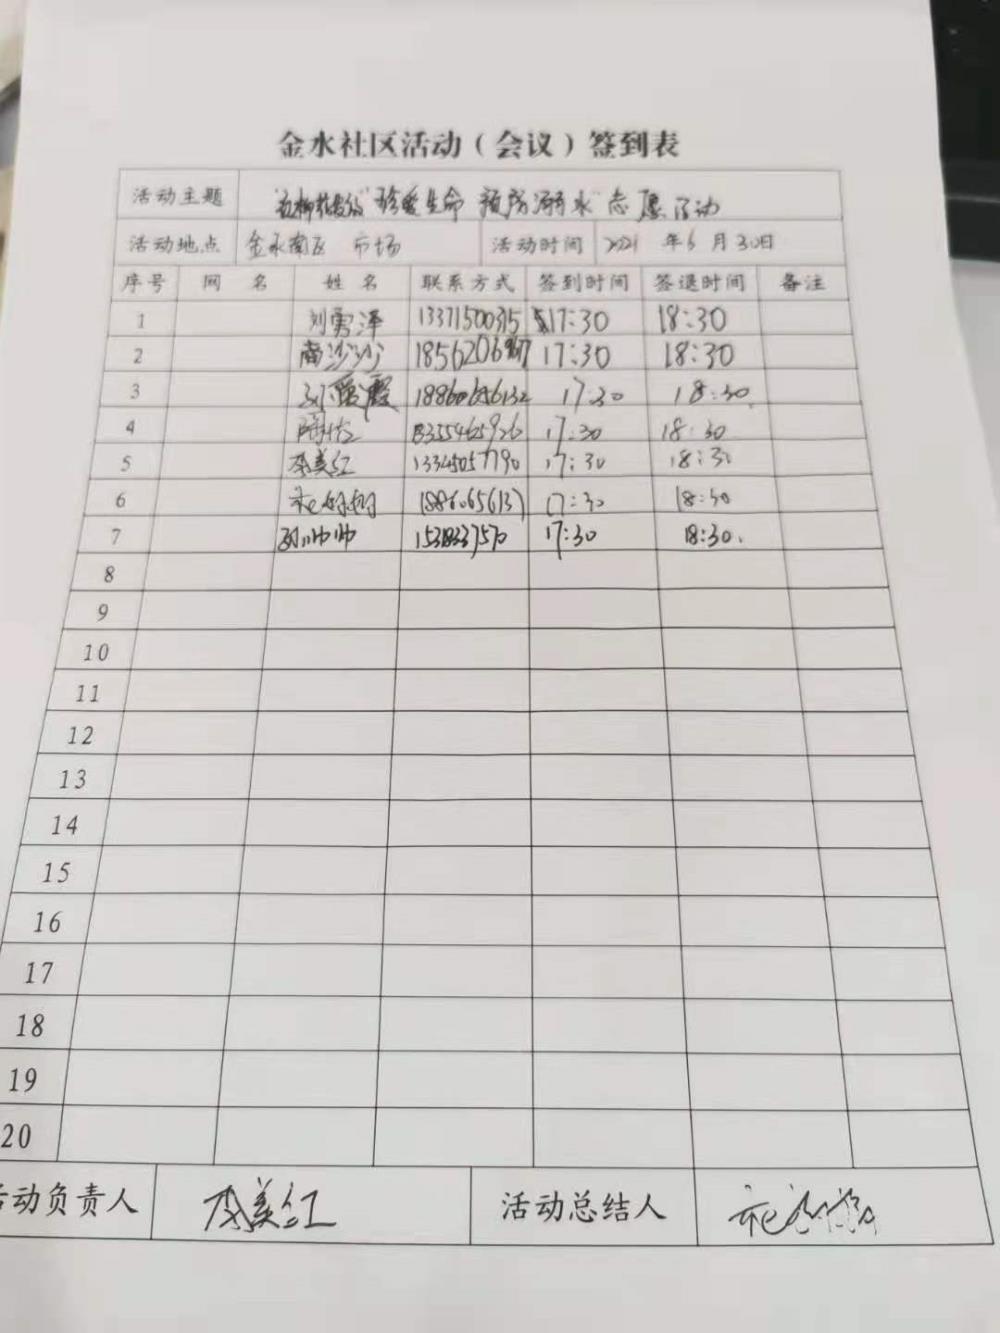 金水社区活动（会议）签到表
活动主题 "珍爱生命 预防溺水"志愿活动
活动地点 金水南区 市场 活动时间 2021 年6月30日
序号 网 名 姓 名 联系方式 签到时间 签退时间 备注
1 刘雪泽 13371500315 17:30 18:30
2 商沙沙 18562069 17:30 18:30
3 霞 17:30 18:30
4 17:30 18:30
5 李美红 17:30 18:30
6 亓 17:30 18:30
7 孙帅帅 17:30 18:30.
8
9
10
11
12
13
14
15
16
17
18
19
20
动负责人 李美红 活动总结人 亓